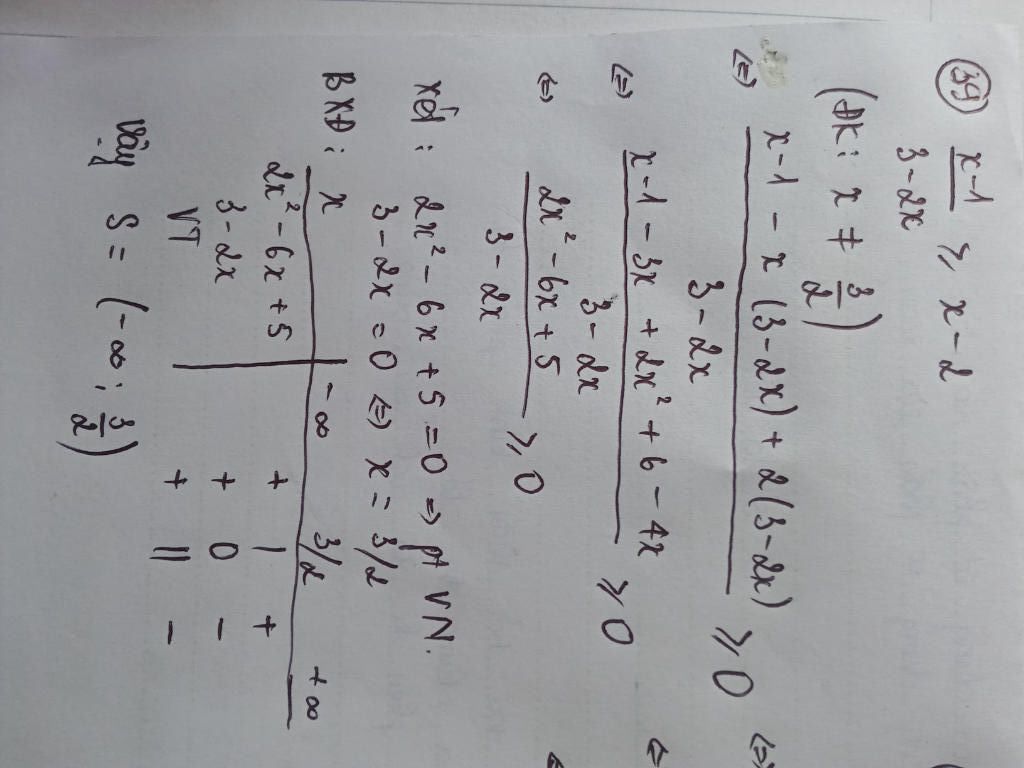 39) (x-1)/(3-2x) ≥ x-2
(ĐK: x ≠ 3/2)
⇔ (x-1 - x(3-2x) + 2(3-2x))/(3-2x) ≥ 0
⇔ (x-1 - 3x + 2x² + 6 - 4x)/(3-2x) ≥ 0
⇔ (2x² - 6x + 5)/(3-2x) ≥ 0
Xét: 2x² - 6x + 5 = 0 ⇒ pt VN.
3 - 2x = 0 ⇔ x = 3/2
BXĐ: x | -∞ 3/2 +∞
2x² - 6x + 5 | + | +
3 - 2x | + 0 -
VT | + || -
Vậy S = (-∞; 3/2)
⇔
⇔
⇔